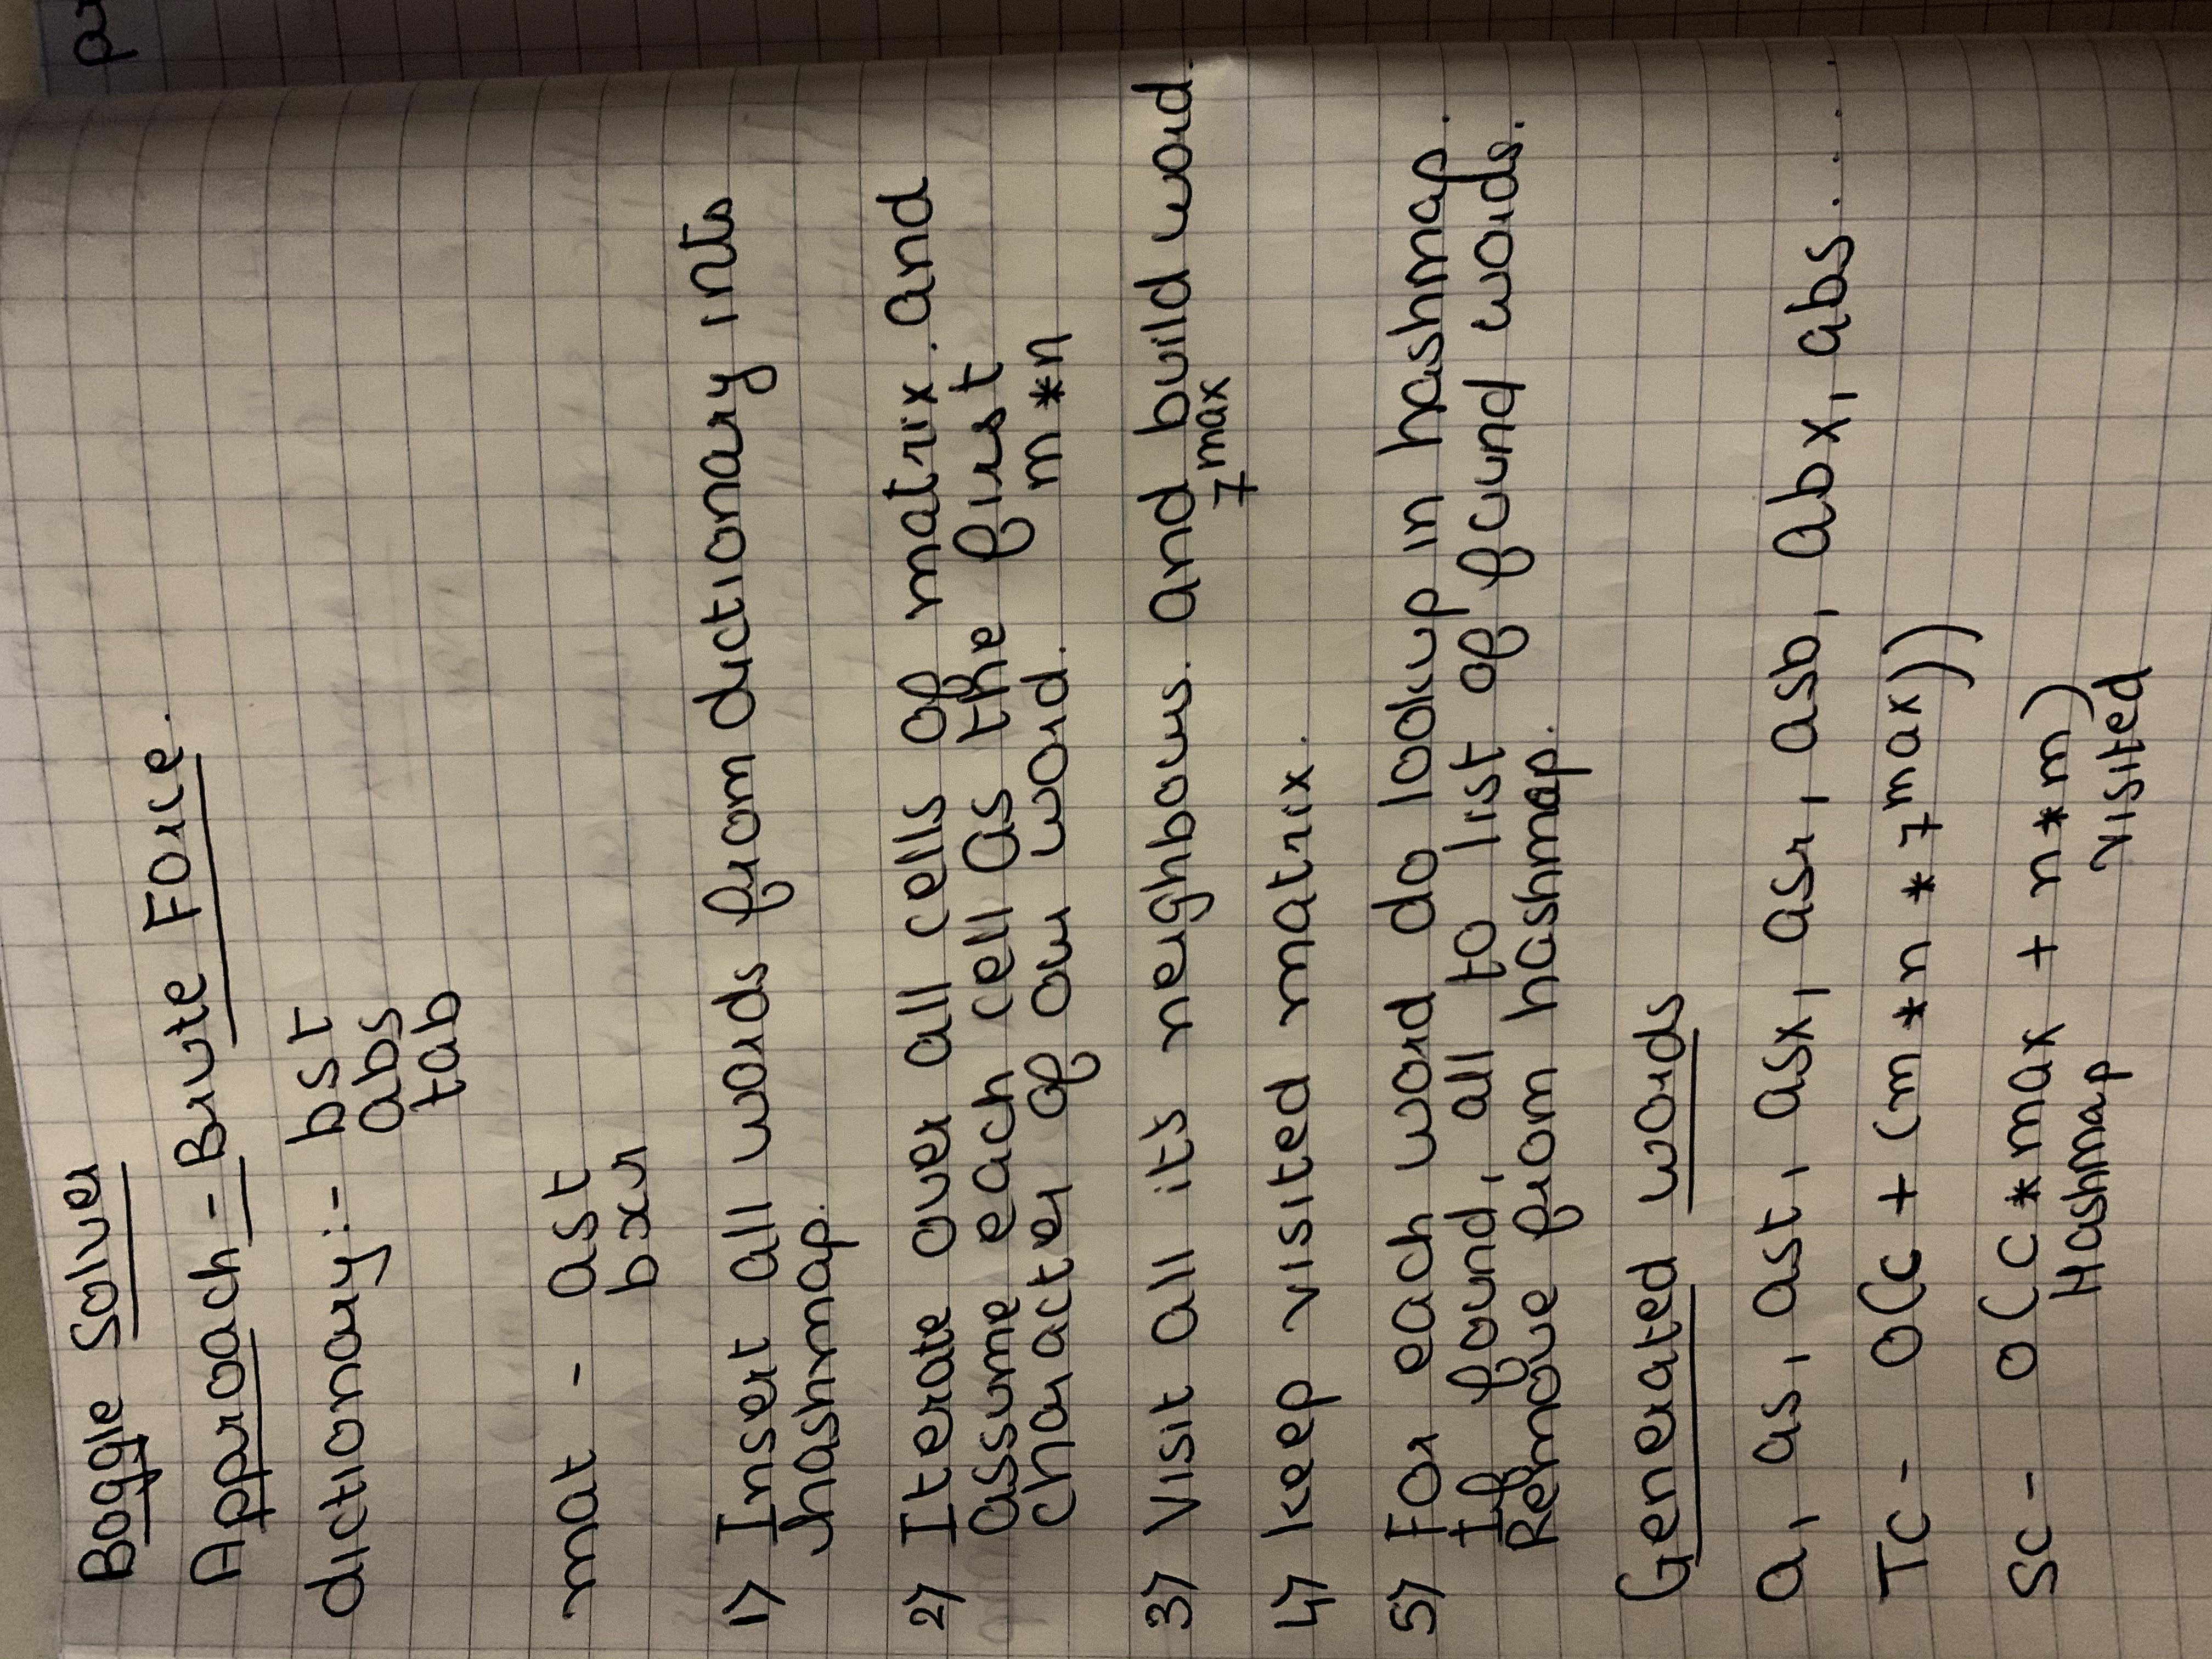 Boggle Solver
Approach - Brute Force.
dictionary:- bst
abs
tab
mat - ast
bxr
1) Insert all words from dictionary into
hashmap.
2) Iterate over all cells of matrix. and
assume each cell as the first
character of our word. m*n
3) Visit all it's neighbours. and build word.
7^max
4) keep visited matrix.
5) For each word do lookup in hashmap.
If found, all to list of found words.
Remove from hashmap.
Generated words
a, as, ast, asx, asr, asb, abx, abs....
TC - O(c + (m*n * 7^max))
SC - O(c*max + n*m)
Hashmap visited